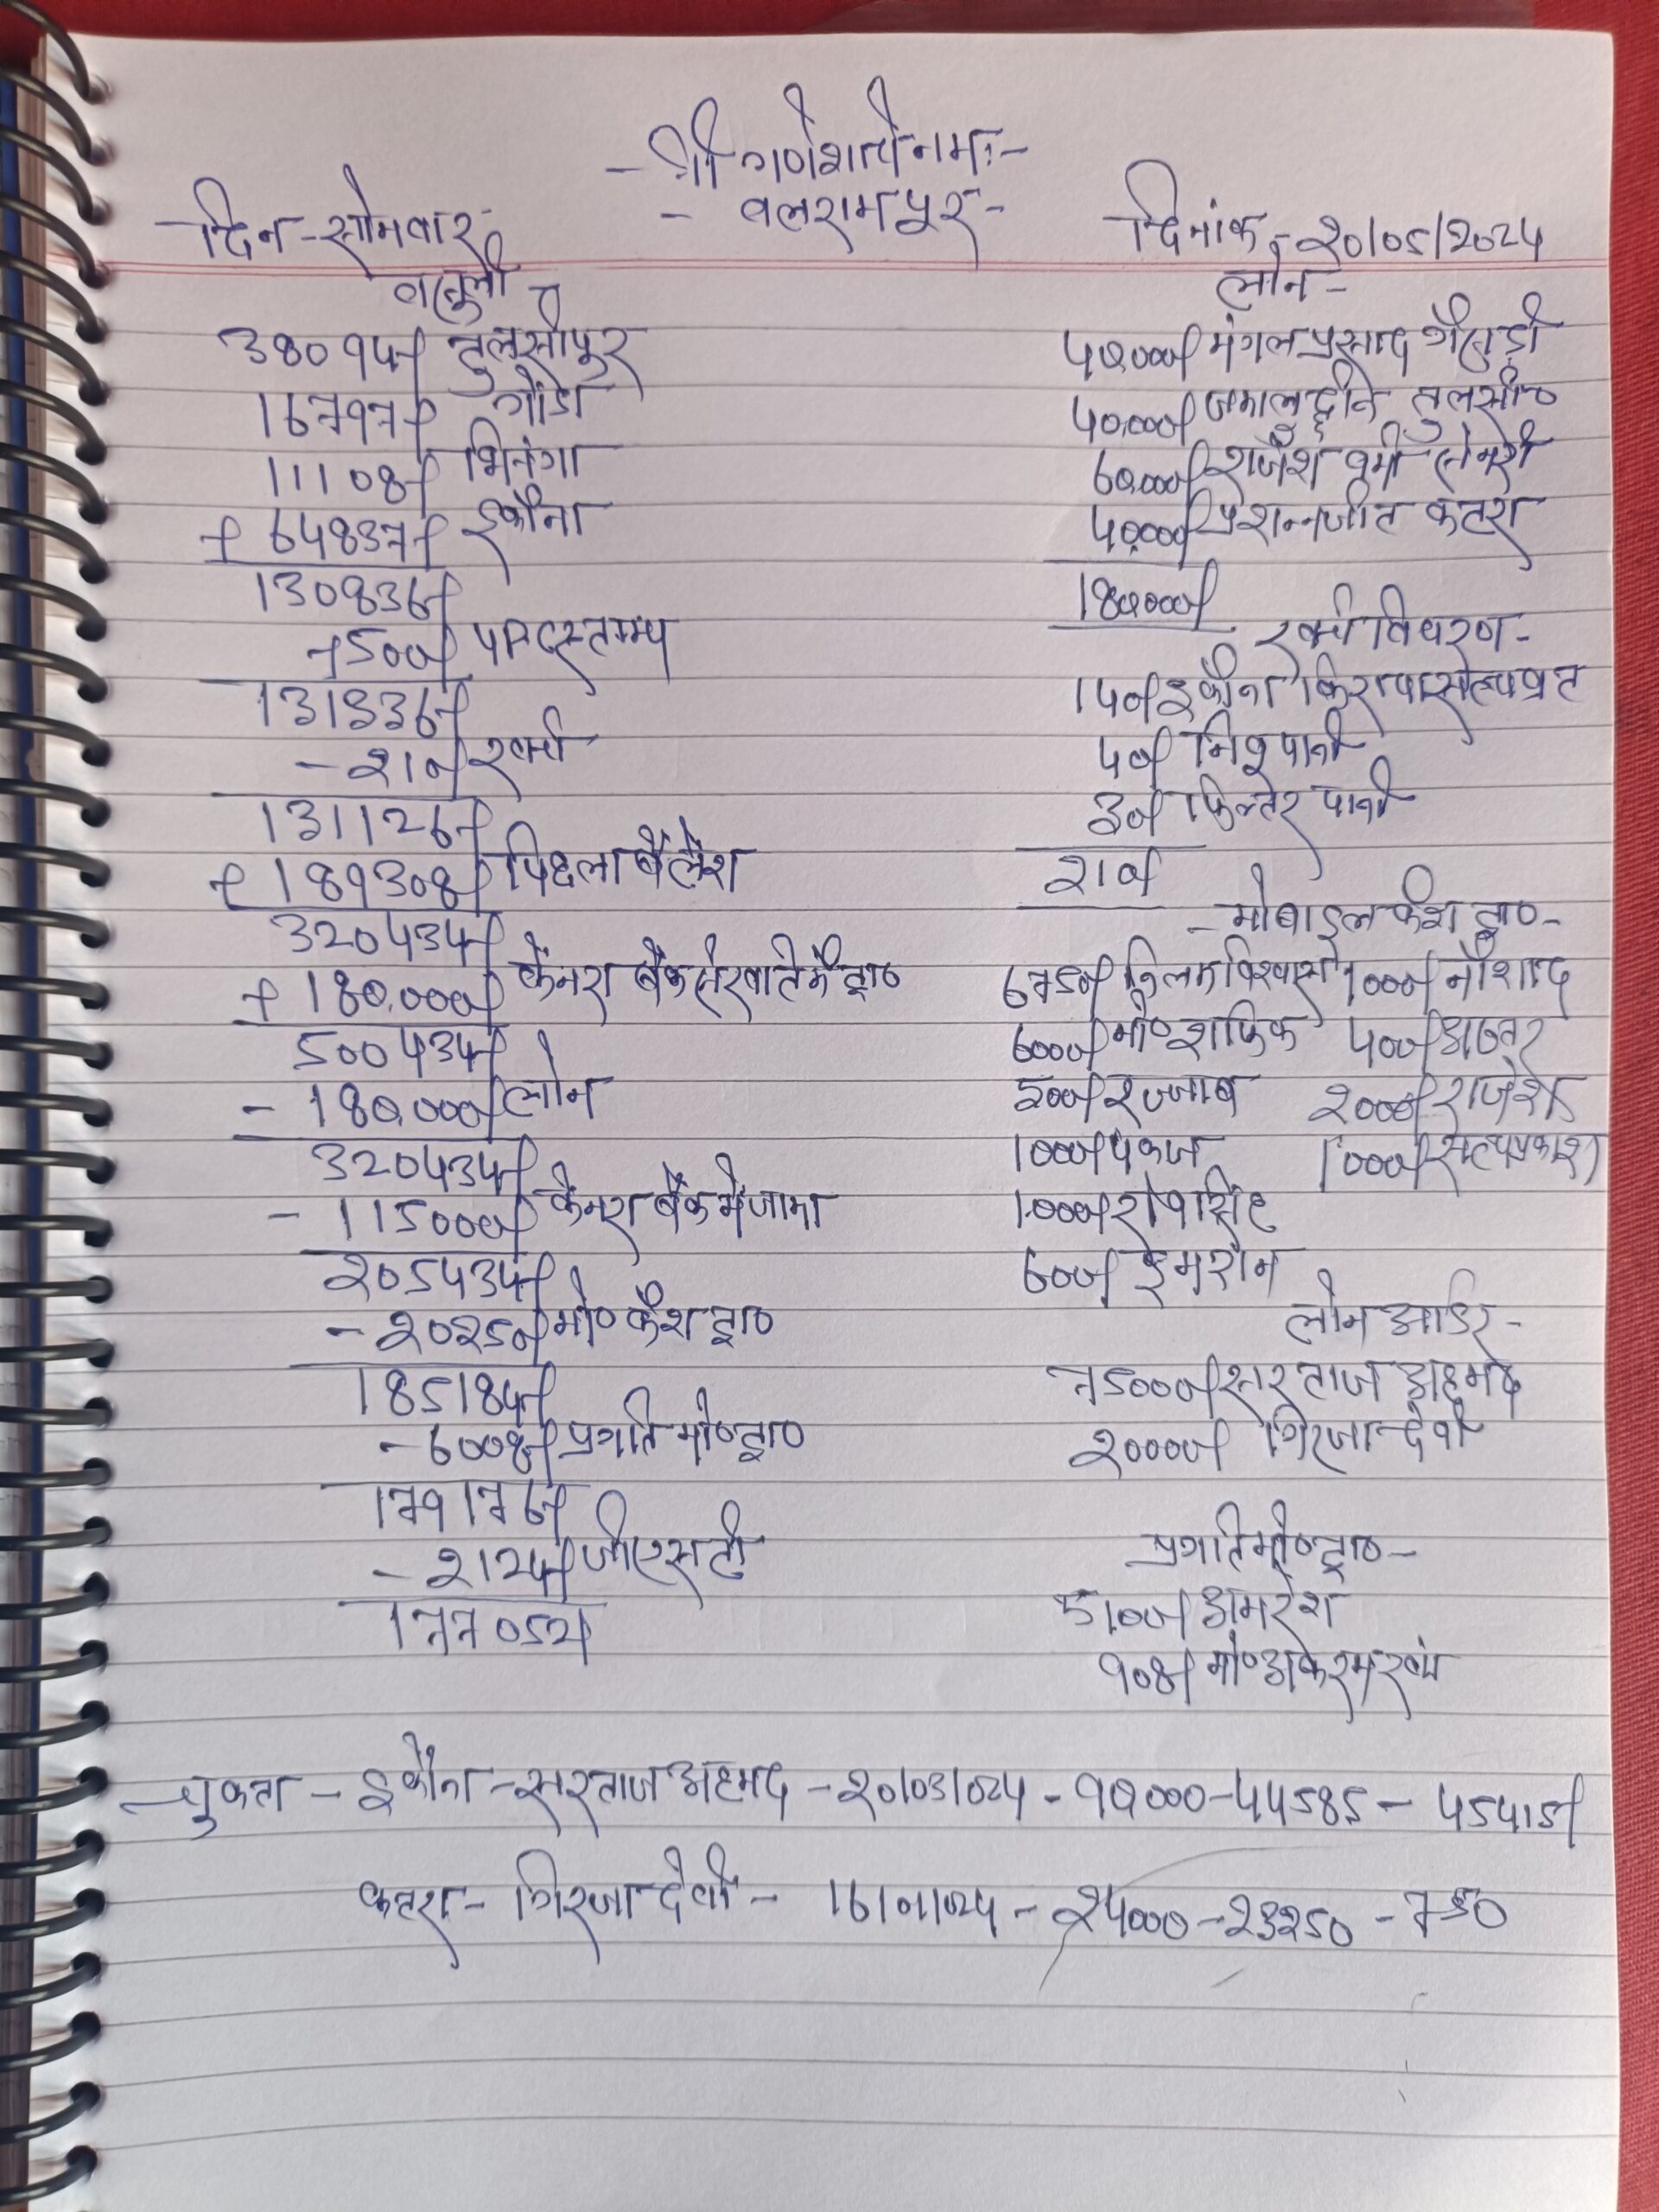 - श्री गणेशाये नमः -
- वलरामपुर -
दिन - सोमवार
दिनांक - 20/05/2024
वसूली -
38094/ तुलसीपुर
16797/ गोंडा
11108/ भिनगा
+ 64837/ इकौना
130836/
+500/
131336/
- 210/ खर्चा
131126/
+ 189308/ पिछला बैलेंश
320434/
+ 180,000/ केनरा बैंक से खाते में द्वा०
500434/
- 180,000/ लोन
320434/
- 115000/ केनरा बैंक में जामा
205434/
- 20250/ मो० कैश द्वा०
185184/
- 6008/ प्रगति मो० द्वा०
179176/
- 2124/ जीएसटी
177052/
लोन -
40,000/ मंगल प्रसाद गैसड़ी
40,000/ जमालुद्दीन तुलसी०
60,000/ राजेश वर्मा सेमरी
40,000/ प्रशन्नजीत कटरा
180,000/
खर्चा विवरण -
140/ इकौना किराया सत्यव्रत
40/ पानी
30/ फिल्टर पानी
210/
- मोबाइल कैश द्वा० -
6750/ तिलक विश्वास 1000/ नौशाद
6000/ मो० शफिक 400/ अख्तर
500/ रज्जाब 2000/ राजेश
1000/ पंकज 1000/ सत्यप्रकाश
1000/ शेषसिंह
600/ इमरान
लोन आर्डर -
75000/ सरताज अहमद
20000/ गिरजा देवी
प्रगति मो० द्वा० -
5100/ अमरेश
908/ मो० अकरम खां
चुकता - इकौना - सरताज अहमद - 20/03/024 - 90,000 - 44585 - 45415/
कटरा - गिरजा देवी - 16/01/024 - 24000 - 23250 - 750